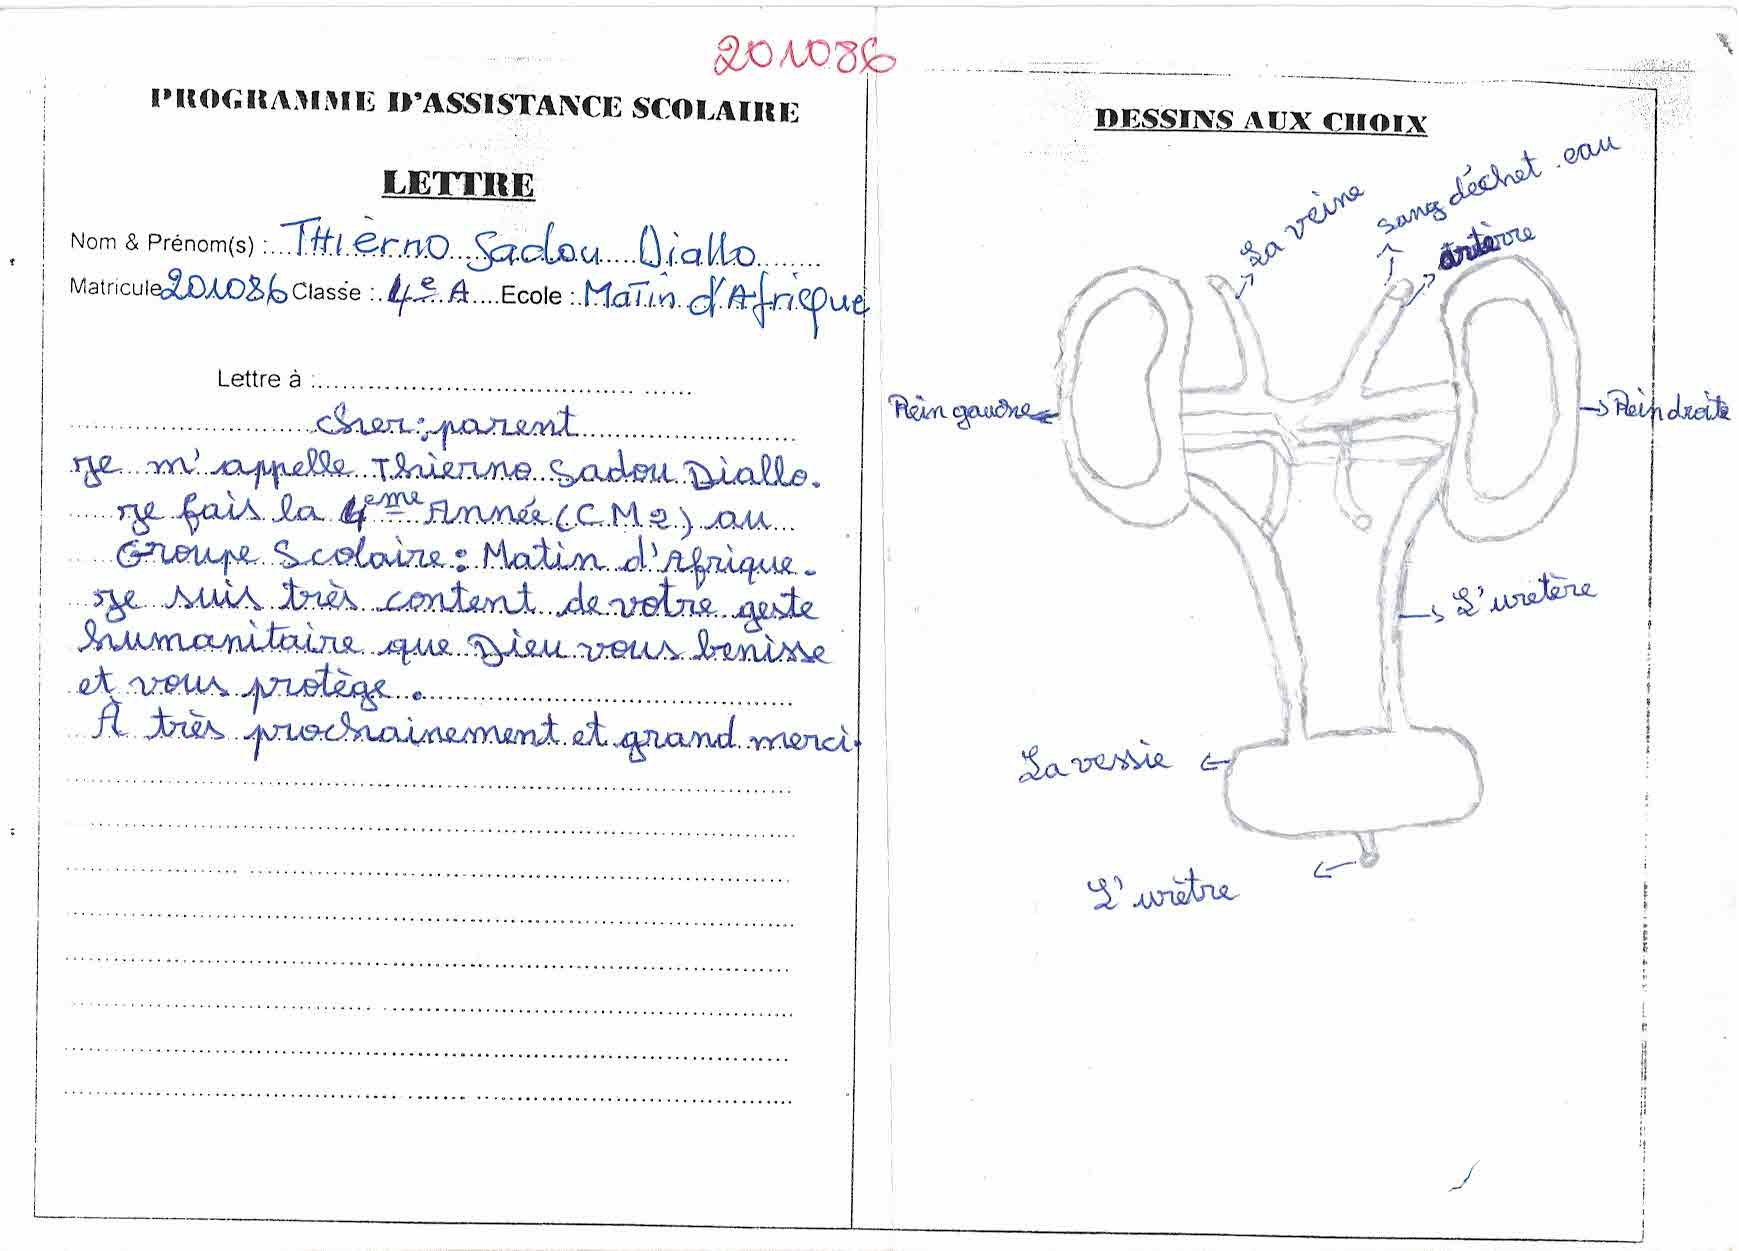 201086
PROGRAMME D'ASSISTANCE SCOLAIRE
LETTRE
Nom & Prénom(s) : THIèrno Sadou Diallo
Matricule 201086 Classe : 4e A Ecole : Matin d'Afrique
Lettre à :
cher : parent
Je m'appelle Thierno Sadou Diallo.
Je fais la 4eme Année (CM2) au
Groupe Scolaire : Matin d'Afrique.
Je suis très content de votre geste
humanitaire que Dieu vous benisse
et vous protège.
À très prochainement et grand merci.
DESSINS AUX CHOIX
La veine
sang déchet eau
artère
Rein gauche
Rein droite
L'uretère
La vessie
L'urètre